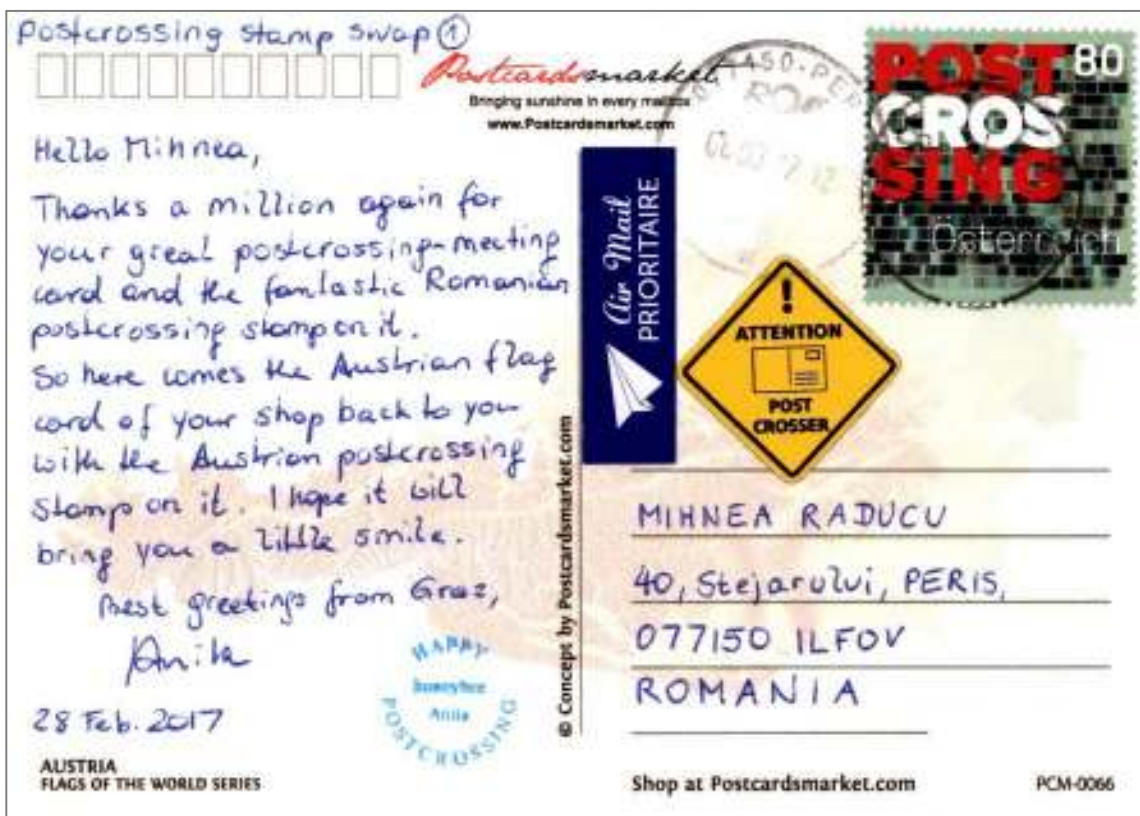 Postcrossing stamp swap ①
Postcardsmarket.
Bringing sunshine in every mailbox
www.Postcardsmarket.com
Hello Mihnea,
Thanks a million again for
your great postcrossing-meeting
card and the fantastic Romanian
postcrossing stamp on it.
So here comes the Austrian flag
card of your shop back to you
with the Austrian postcrossing
stamp on it. I hope it will
bring you a little smile.
Best greetings from Graz,
Anita
28 Feb. 2017
HAPPY
honeybee
Anita
POSTCROSSING
AUSTRIA
FLAGS OF THE WORLD SERIES
© Concept by Postcardsmarket.com
Air Mail
PRIORITAIRE
POST 80
CROS
SING
Österreich
!
ATTENTION
POST
CROSSER
MIHNEA RADUCU
40, Stejarului, PERIS,
077150 ILFOV
ROMANIA
Shop at Postcardsmarket.com
PCM-0066